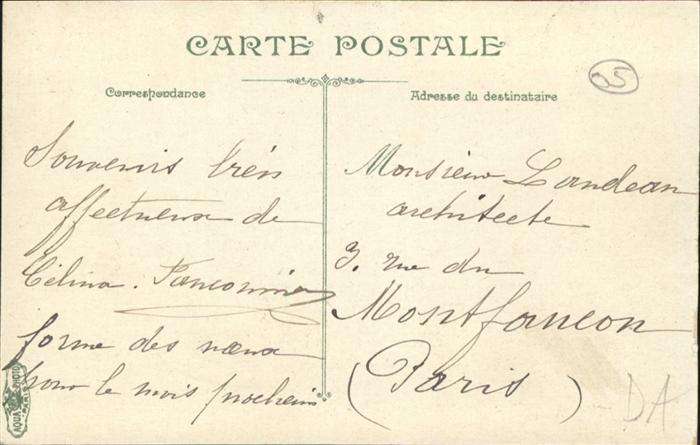 CARTE POSTALE
05
Correspondance
Souvenirs très
affectueux de
Célina.
forme des vœux
pour le mois prochain
Adresse du destinataire
Monsieur Landeau
architecte
3. rue du
Montfaucon
(Paris)
DA
AQUA PHOTO